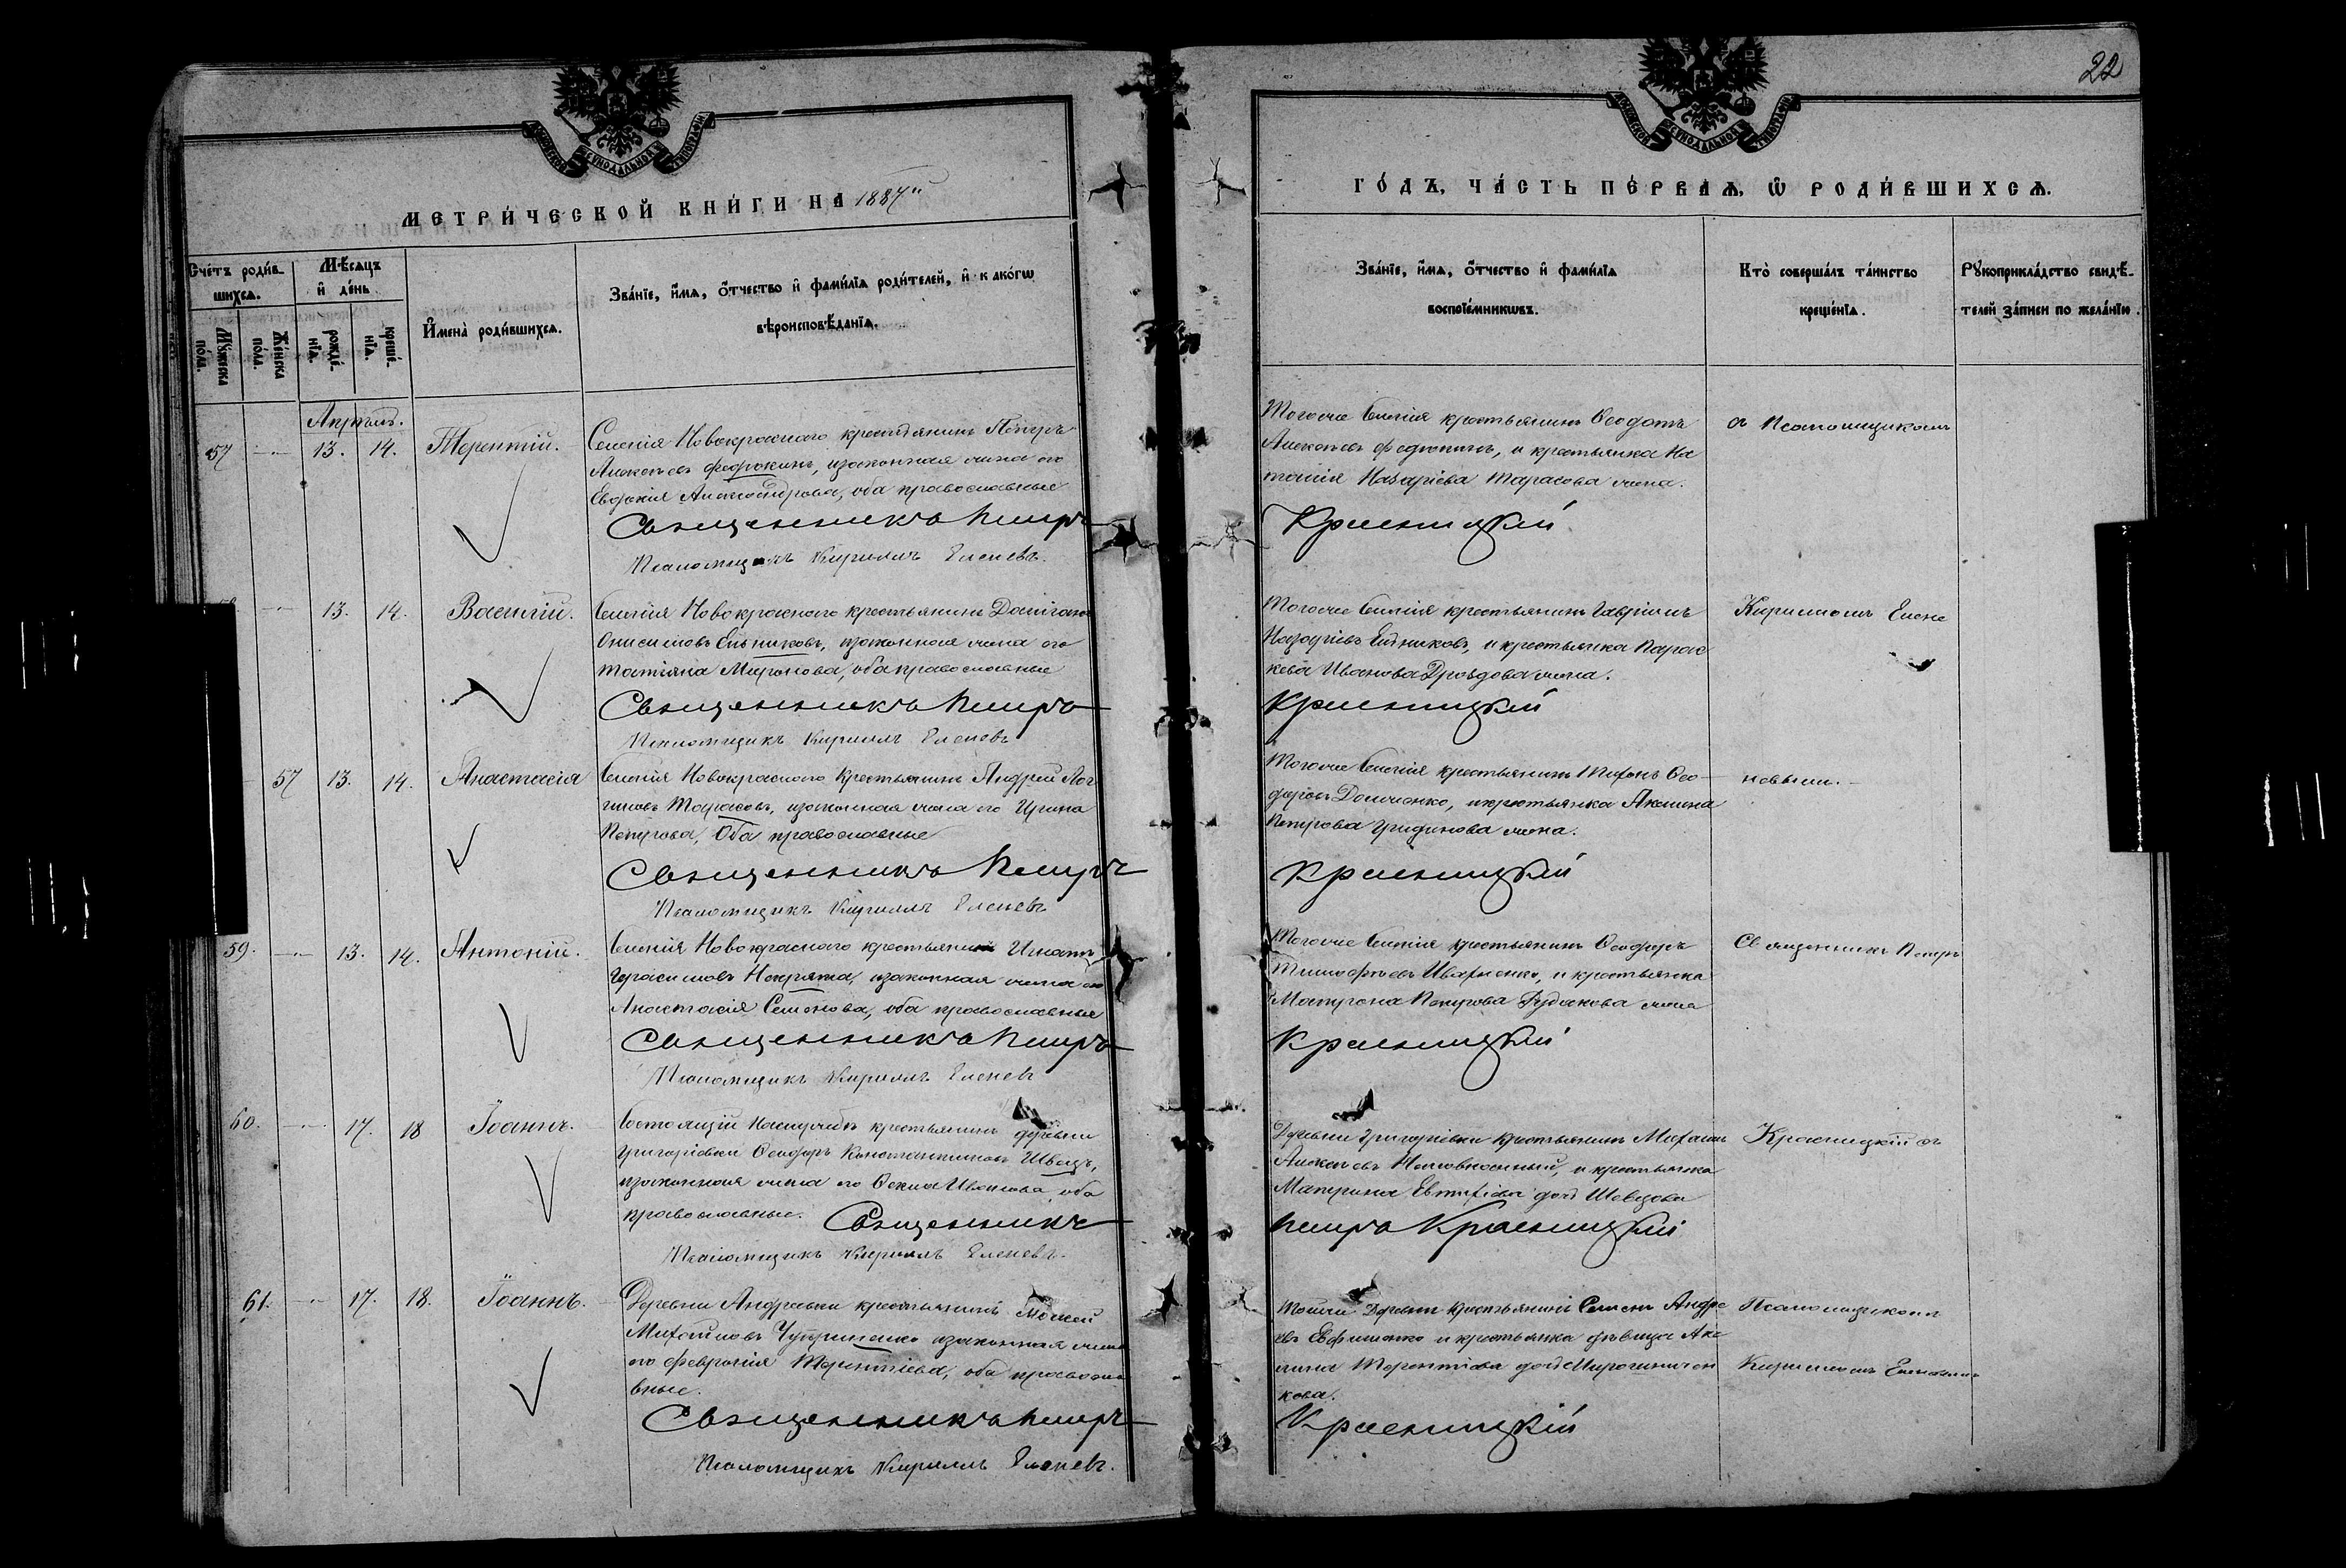 22
МЕТРИ́ЧЕСКОЙ КНИ́ГИ НА 1887й
ГО́ДЪ, ЧА́СТЬ ПЕ́РВАѦ, Ѡ҆ РОДИ́ВШИХСѦ.
Сче́тъ роди́вшихсѧ.
Мѣ́сѧцъ и҆ де́нь
Мꙋ́жеска по́ла.
Же́нска по́ла.
рожде́нїѧ.
креще́нїѧ.
И҆мена̀ роди́вшихсѧ.
Зва́нїе, и҆́мѧ, о҆́тчество и҆ фами́лїѧ роди́телей, и҆ како́гѡ
вѣроисповѣ́данїѧ.
Зва́нїе, и҆́мѧ, о҆́тчество и҆ фами́лїѧ
воспрїе́мникѡвъ.
Кто̀ соверша́лъ та́инство
креще́нїѧ.
Рꙋкоприкла́дство свидѣ́телей за́писи по жела́нїю.
Апрѣль.
57 13. 14. Терентій.
Селенія Новокраснаго крестьянинъ Петръ
Алексѣевъ Федюкинъ, изаконная жена его
Евдокія Александрова, оба православные
Священникъ Петръ
Псаломщикъ Кириллъ Еленевъ.
Тогоже Селенія крестьянинъ Ѳеодотъ
Алексѣевъ Федюкинъ, и крестьянка На
талія Назаріева Тарасова жена.
Красницкій
съ Псаломщикомъ
13. 14. Василій.
Селенія Новокраснаго крестьянинъ
Онисимовъ Ельниковъ, изаконная жена его
Татіяна Миронова, оба православные
Священникъ Петръ
Псаломщикъ Кириллъ Еленевъ
Тогоже Селенія крестьянинъ Гавріилъ
Назаріевъ Ельниковъ, и крестьянка Парас
кева Иванова Дроздова жена.
Красницкій
Кирилломъ Елене
57 13. 14. Анастасія
Селенія Новокраснаго Крестьянинъ Андрей Лог
гиновъ Тарасовъ, изаконная жена его Ирина
Петрова, Оба православные
Священникъ Петръ
Псаломщикъ Кириллъ Еленевъ
Тогоже Селенія крестьянинъ Тихонъ Ѳео
доровъ икрестьянка Акилина
Петрова Гридинова жена.
Красницкій
невымъ.
59. 13. 14. Антоній.
Селенія Новокраснаго крестьянинъ Игнатъ
Герасимовъ изаконная жена его
Анастасія Семенова, оба православные
Священникъ Петръ
Псаломщикъ Кириллъ Еленевъ
Тогоже Селенія крестьянинъ Ѳеодоръ
Тимофѣевъ Ивахненко, и крестьянка
Матрона Петрова Рудакова жена
Красницкій
Священникъ Петръ
60. 17. 18 Іоаннъ.
Состоящій крестьянинъ деревни
Григоріевки Ѳеодоръ Константиновъ Швецъ,
изаконная жена его Ѳекла Иванова, оба
православные. Священникъ
Псаломщикъ Кириллъ Еленевъ.
Деревни Григоріевки крестьянинъ Михаилъ
Алексѣевъ и крестьянка
Матрина Евтихіева Шевцова
Петръ Красницкій
Красницкій съ
61. 17. 18. Іоаннъ.
Деревни Андреевки крестьянинъ Моисей
Михайловъ Чуприненко изаконная жена
его Февронія Терентіева, оба правосла
вные.
Священникъ Петръ
Псаломщикъ Кириллъ Еленевъ.
Тойже Деревни крестьянинъ Семенъ Андре
евъ Евфименко и крестьянка дѣвица Аки
лина Терентіева
кова.
Красницкій
Псаломщикомъ
Кирилломъ Еленевымъ